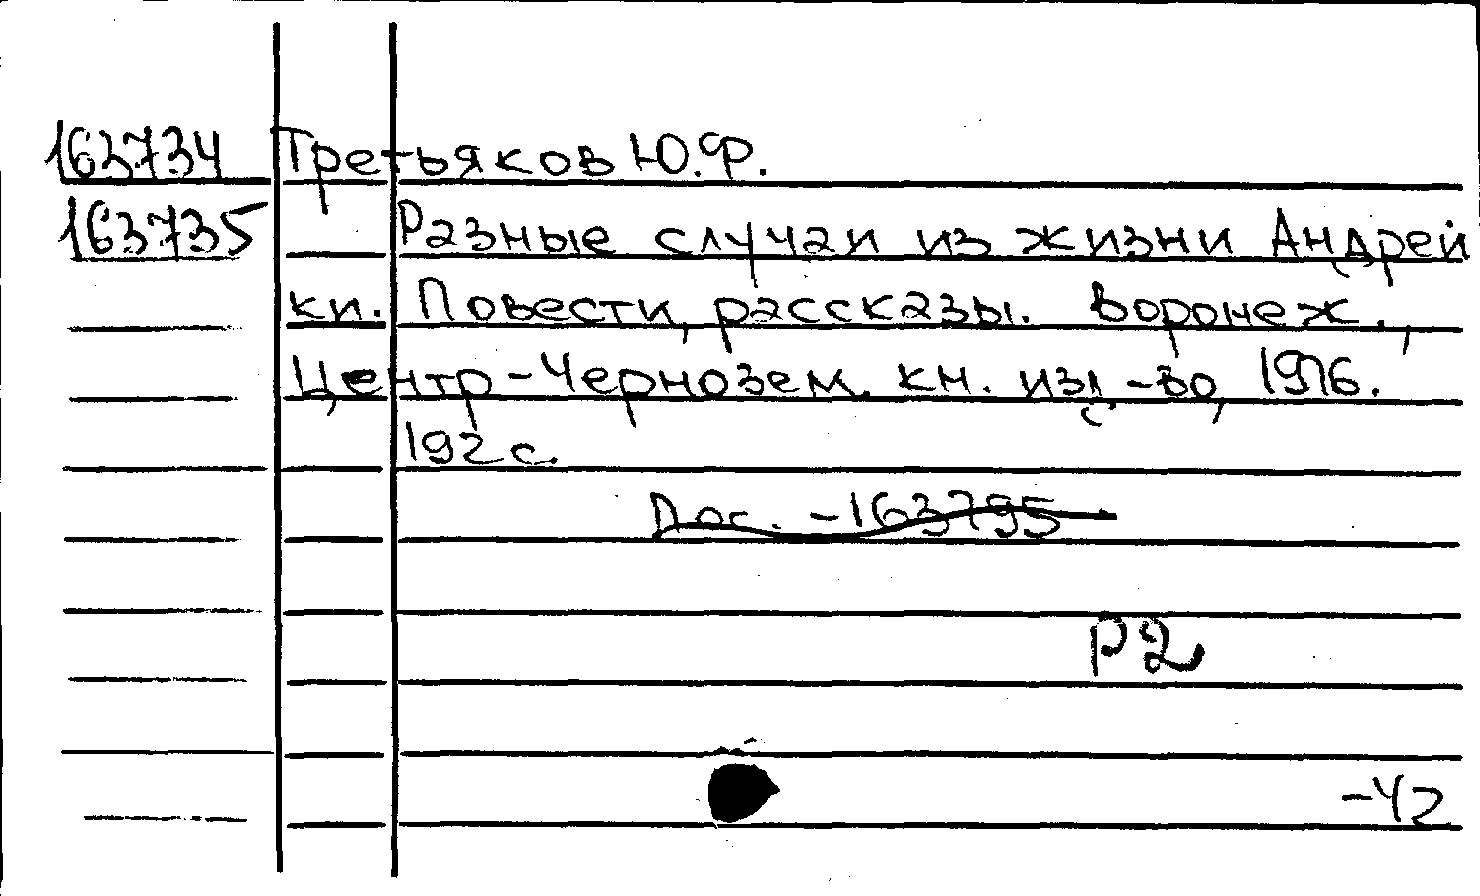 163734 Третьяков Ю.Ф.
163735 Разные случаи из жизни Андрей
ки. Повести, рассказы. Воронеж.,
Центр-Чернозем. кн. изд-во, 1976.
192 с.
Дос. -163795
Р2
-42